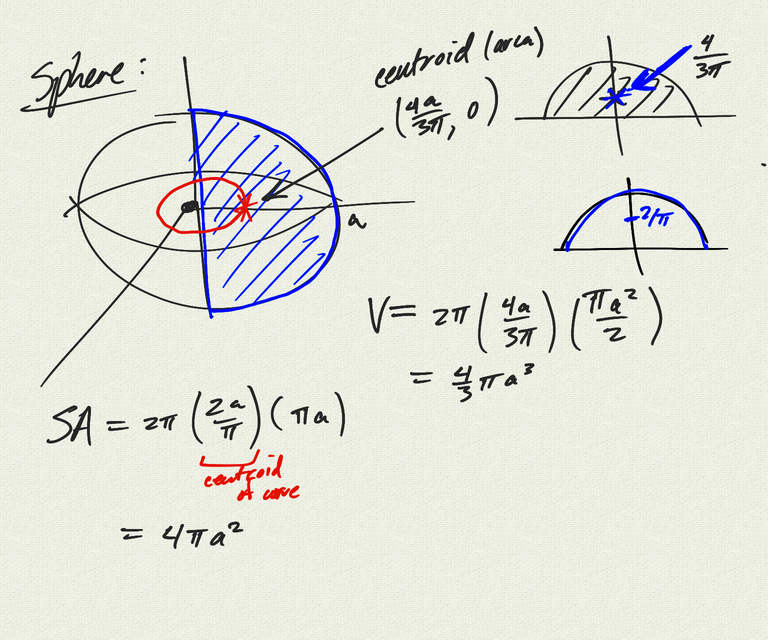 Sphere:
centroid (area)
(4a/3π, 0)
4/3π
2/π
a
V = 2π (4a/3π) (πa²/2)
= 4/3 πa³
SA = 2π (2a/π) (πa)
centroid
of curve
= 4πa²